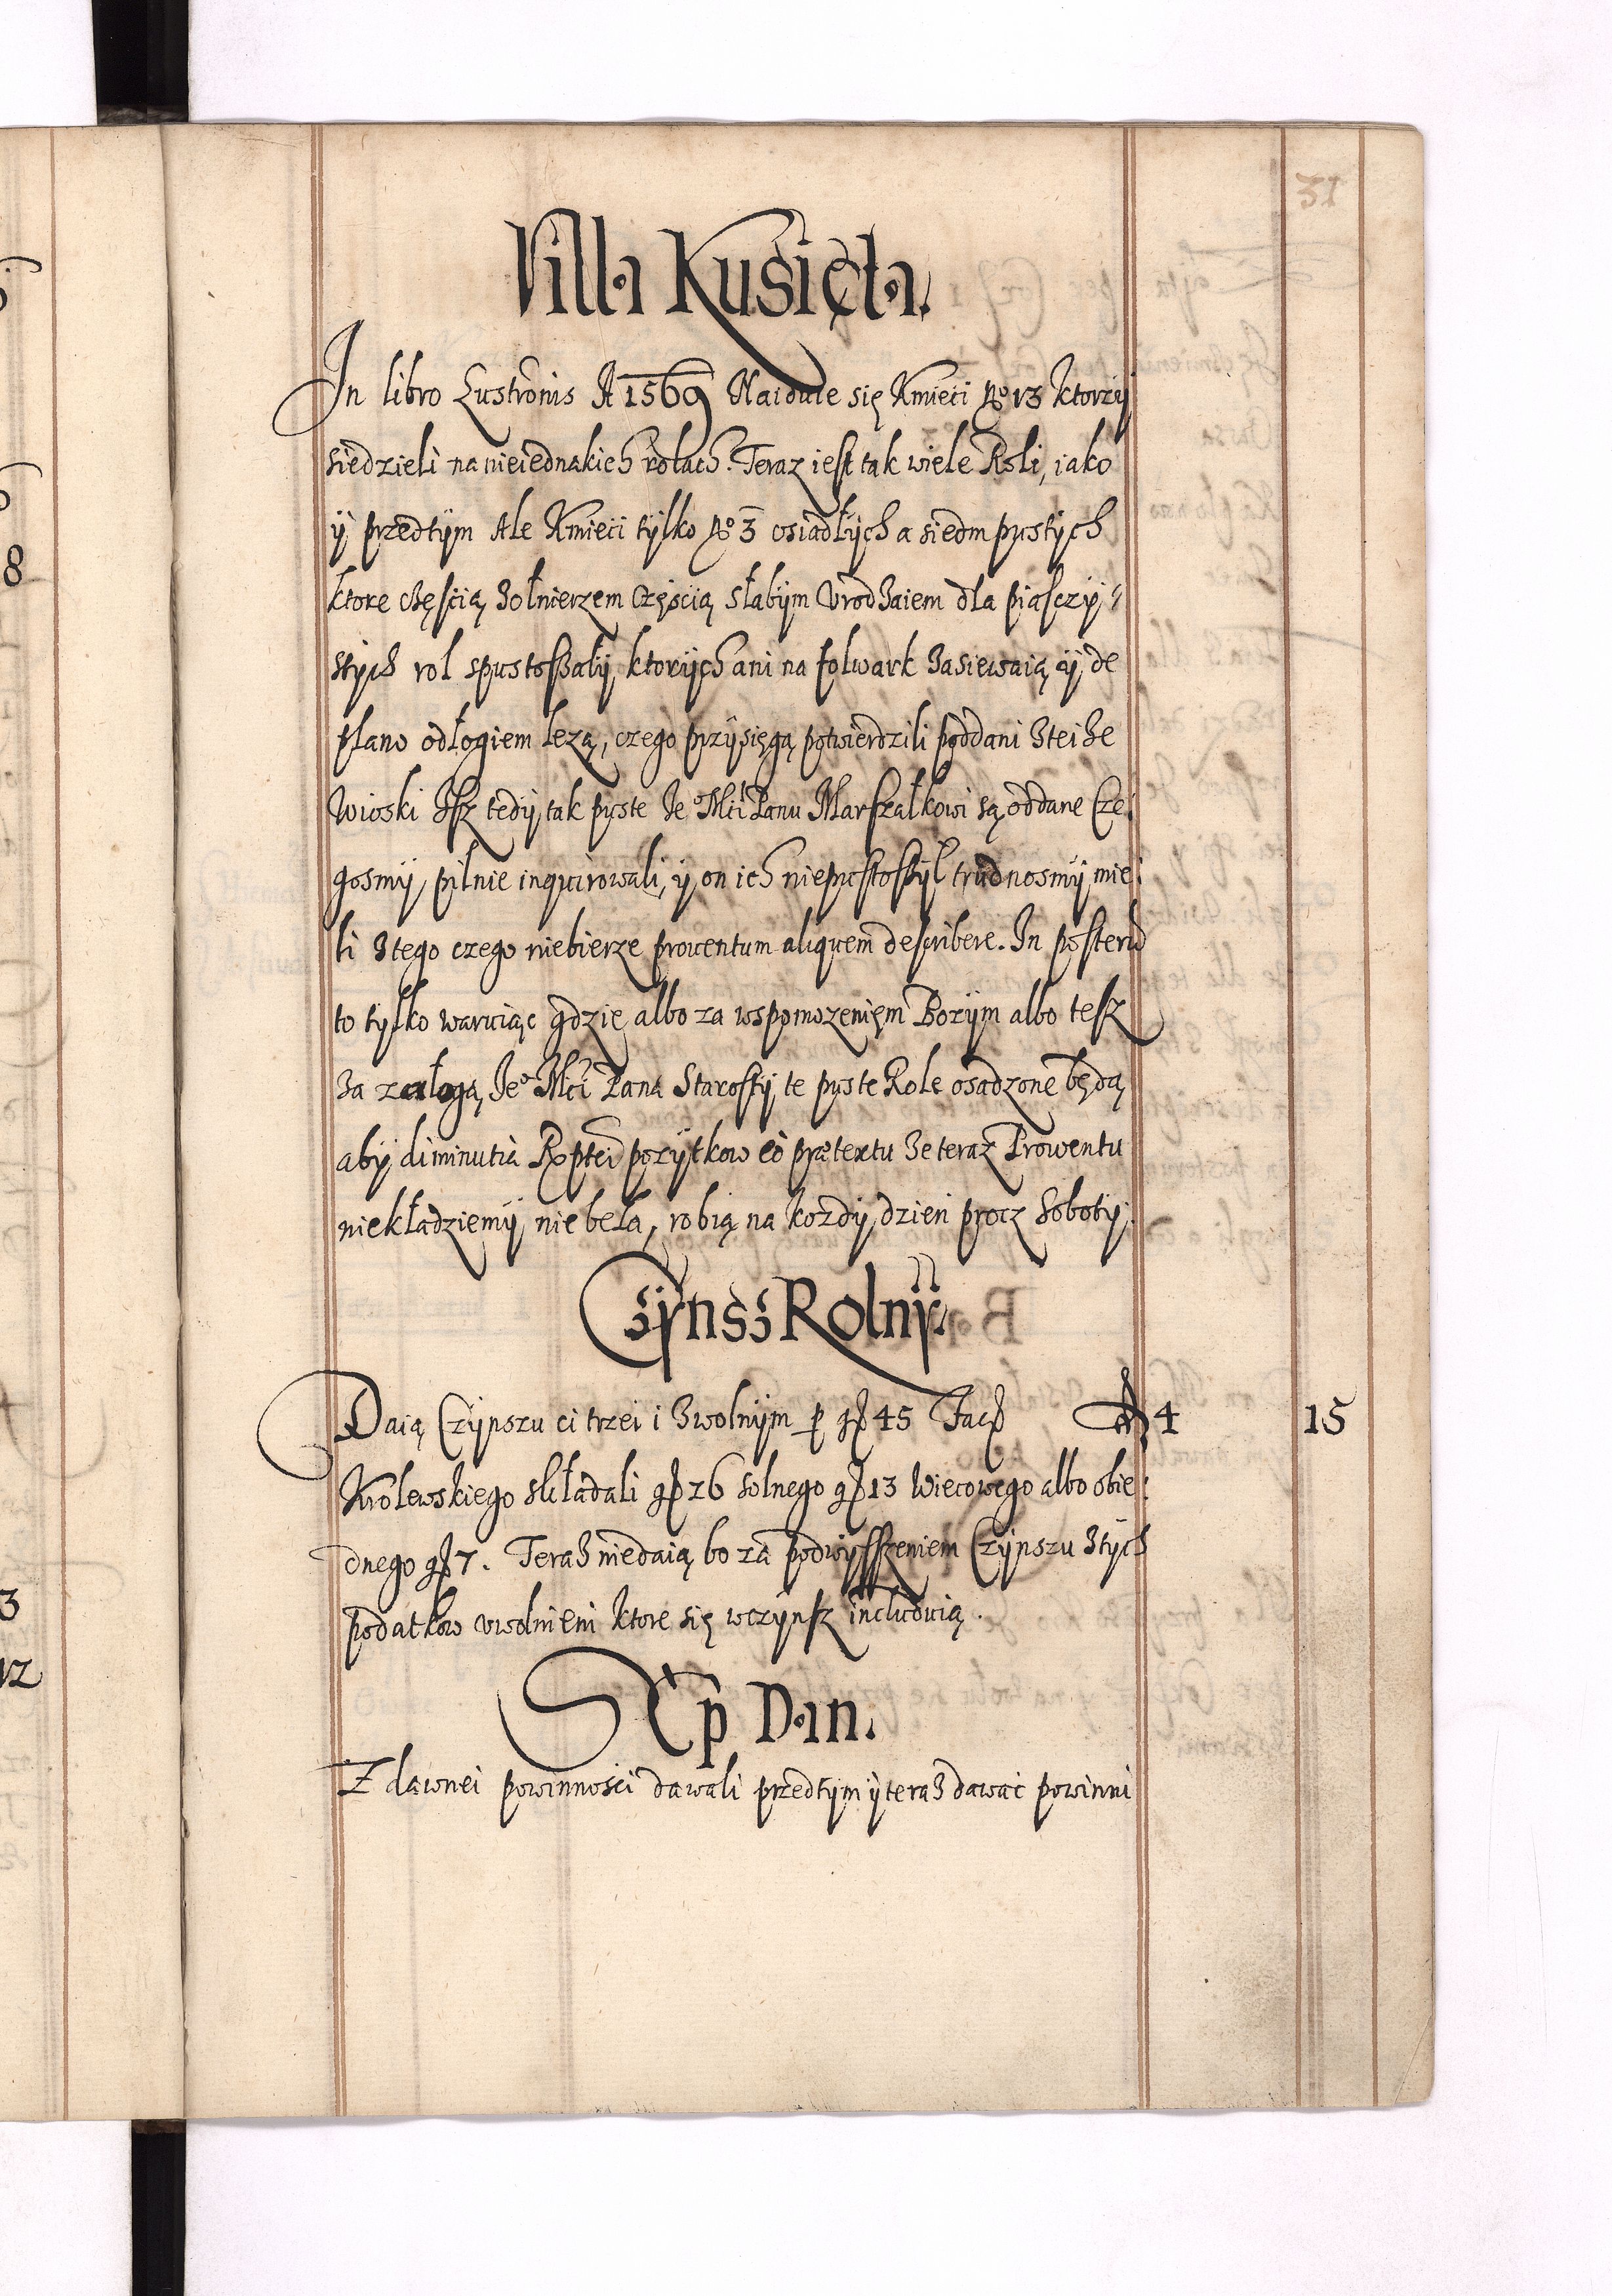 31
Villa Kusięta.
In libro Lustronis A 1569 Naiduie się Kmieci No 13 ktorzÿ
siedzieli na nieiednakich rolach. Teraz iest tak wiele Roli, iako
ÿ przedtÿm Ale Kmieci tÿlko No 3 osiadłÿch a siedm pustÿch
ktore częścią zołnierzem Częścią słabÿm vrodzaiem dla piasczÿ
stÿch rol spustoszałÿ, ktorÿch ani na folwark zasiewaią ÿ de
plano odłogiem lezą, czego przÿsięgą potwierdzili poddani z tei ze
wioski Isz tedÿ tak puste Ieo Mci Panu Marszałkowi są oddane Cze
gosmÿ pilnie inquirowali, ÿ on ich niepustoszÿł trudnosmÿ mie
li z tego czego niebierze prouentum aliquem describere. In posteru
to tÿlko waruiąc gdzie albo za wspomozenięm Bozÿm albo tesz
za załogą Ieo Mci Pana Starostÿ te puste Role osadzone będą
abÿ diminutia Rptei pozÿtkow eo prætextu ze teraz Prowentu
niekładziemÿ nie beła, robią na kozdÿ dzien procz Sobotÿ.
Czÿnsz Rolnÿ.
Daią Czÿnszu ci trzei i zwolnÿm p gß 45 Facß 4 15
Krolewskiego składali gß 26 solnego gß 13 Wiecowego albo obie
dnego gß 7. Teraz niedaią bo za podwÿsszeniem Czÿnszu z tÿch
podatkow vwolnieni ktore się w czÿnsz includuią.
Sęp Dan.
Z dawnei powinnosci dawali przedtÿm ÿ teraz dawac powinni
8
3
12